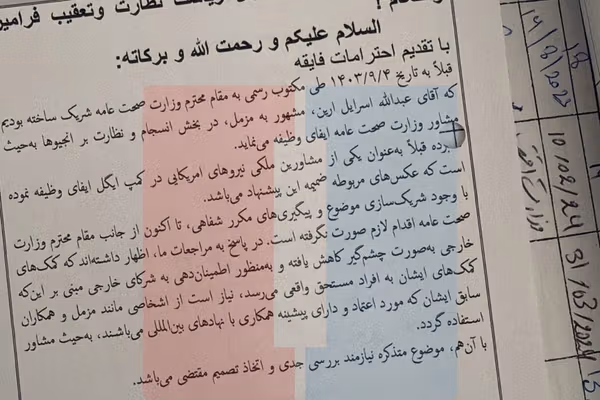 ریاست نظارت وتعقیب فرامین
السلام علیکم و رحمت الله و برکاته:
با تقدیم احترامات فایقه
قبلاً به تاریخ ۱۴۰۳/۹/۴ طی مکتوب رسمی به مقام محترم وزارت صحت عامه شریک ساخته بودیم
که آقای عبدالله اسرایل ارین، مشهور به مزمل، در بخش انسجام و نظارت بر انجیوها به‌حیث
مشاور وزارت صحت عامه ایفای وظیفه می‌نماید.
قبلاً به‌عنوان یکی از مشاورین ملکی نیروهای امریکایی در کمپ ایگل ایفای وظیفه نموده
است که عکس‌های مربوطه ضمیمه این پیشنهاد می‌باشد.
با وجود شریک‌سازی موضوع و پیگیری‌های مکرر شفاهی، تا اکنون از جانب مقام محترم وزارت
صحت عامه اقدام لازم صورت نگرفته است. در پاسخ به مراجعات ما، اظهار داشته‌اند که کمک‌های
خارجی به‌صورت چشم‌گیر کاهش یافته و به‌منظور اطمینان‌دهی به شرکای خارجی مبنی بر این‌که
کمک‌های ایشان به افراد مستحق واقعی می‌رسد، نیاز است از اشخاصی مانند مزمل و همکاران
سابق ایشان که مورد اعتماد و دارای پیشینه همکاری با نهادهای بین‌المللی می‌باشند، به‌حیث مشاور
استفاده گردد.
با آن‌هم، موضوع متذکره نیازمند بررسی جدی و اتخاذ تصمیم مقتضی می‌باشد.
18
10/02/24
31/03/2024